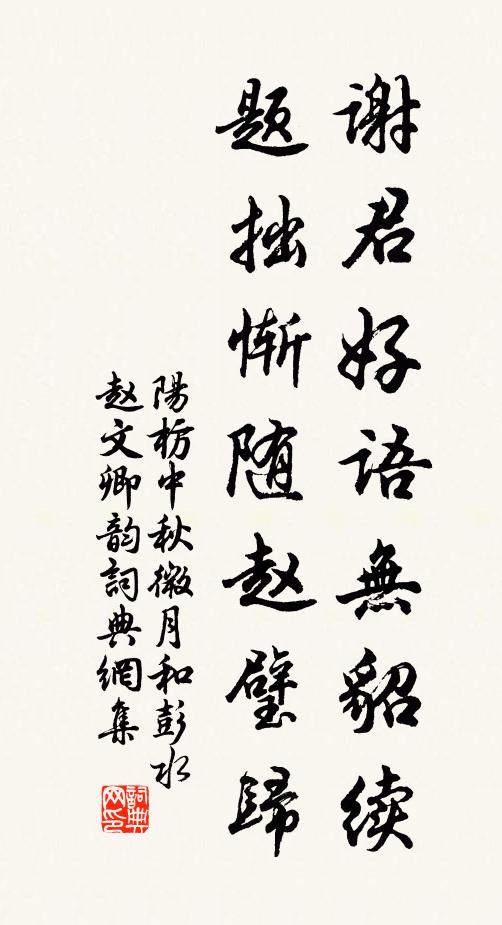 谢君好语無貂续
题拙惭随赵璧歸
陽枋中秋微月和彭水
赵文卿韵詞典網集
詞典网印